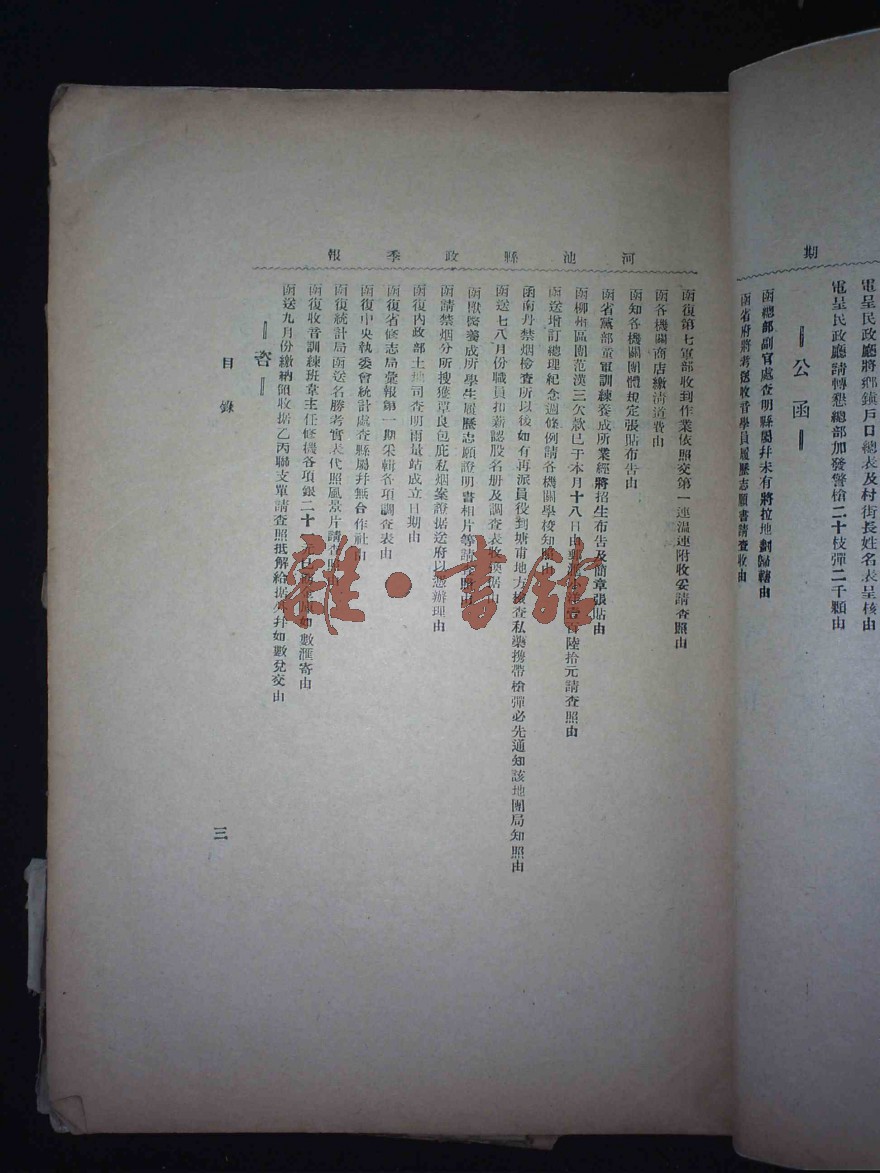 期
電呈民政廳將鄉鎮戶口總表及村街長姓名表呈核由
電呈民政廳請轉懇總部加發警槍二十枝彈二千顆由
公函
函總部副官處查明縣屬幷未有將拉地劃歸轄由
函省府將考送收音學員履歷志願書請查收由
河池縣政季報
函復第七軍部收到作業依照交第一連溫連附收妥請查照由
函各機關商店繳清道費由
函知各機關團體規定張貼布告由
函省黨部童軍訓練養成所業經將招生布告及簡章張貼由
函柳州區團范漢三欠款已于本月十八日由 陸拾元請查照由
函送增訂總理紀念週條例請各機關學校知照由
函南丹禁烟檢查所以後如有再派員役到塘甫地方檢查私藥携帶槍彈必先通知該地團局知照由
函送七八月份職員扣薪認股名册及調查表收換据由
函獸醫養成所學生履歷志願證明書相片等請 由
函請禁烟分所搜獲覃良包庇私烟案證据送府以憑辦理由
函復內政部土地司查明雨量站成立日期由
函復省修志局彙報第一期采輯各項調查表由
函復中央執委會統計處查縣屬幷無合作社由
函復統計局函送名勝考實表代照風景片請查
函復收音訓練班韋主任修機各項銀二十 如數滙寄由
函送九月份繳納領收据乙丙聯支單請查照抵解給据 幷如數兌交由
咨
目錄
三
雜·書館